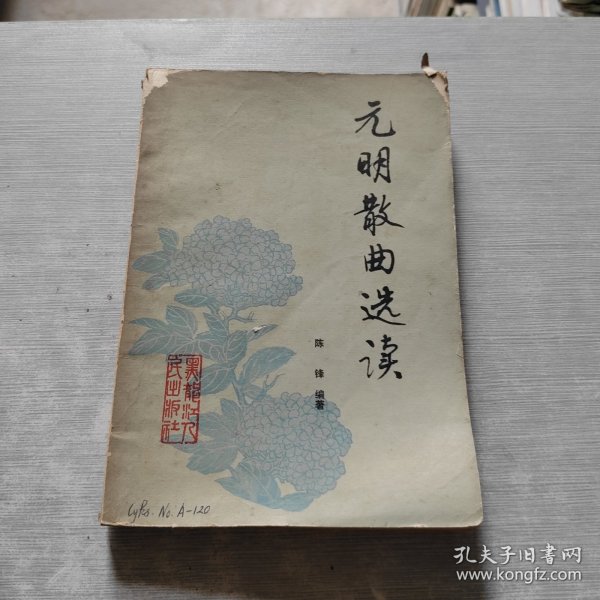 元明散曲选读
陈锋编著
黑龙江人
民出版社
No. A-120
孔夫子旧书网
www.kongfz.com